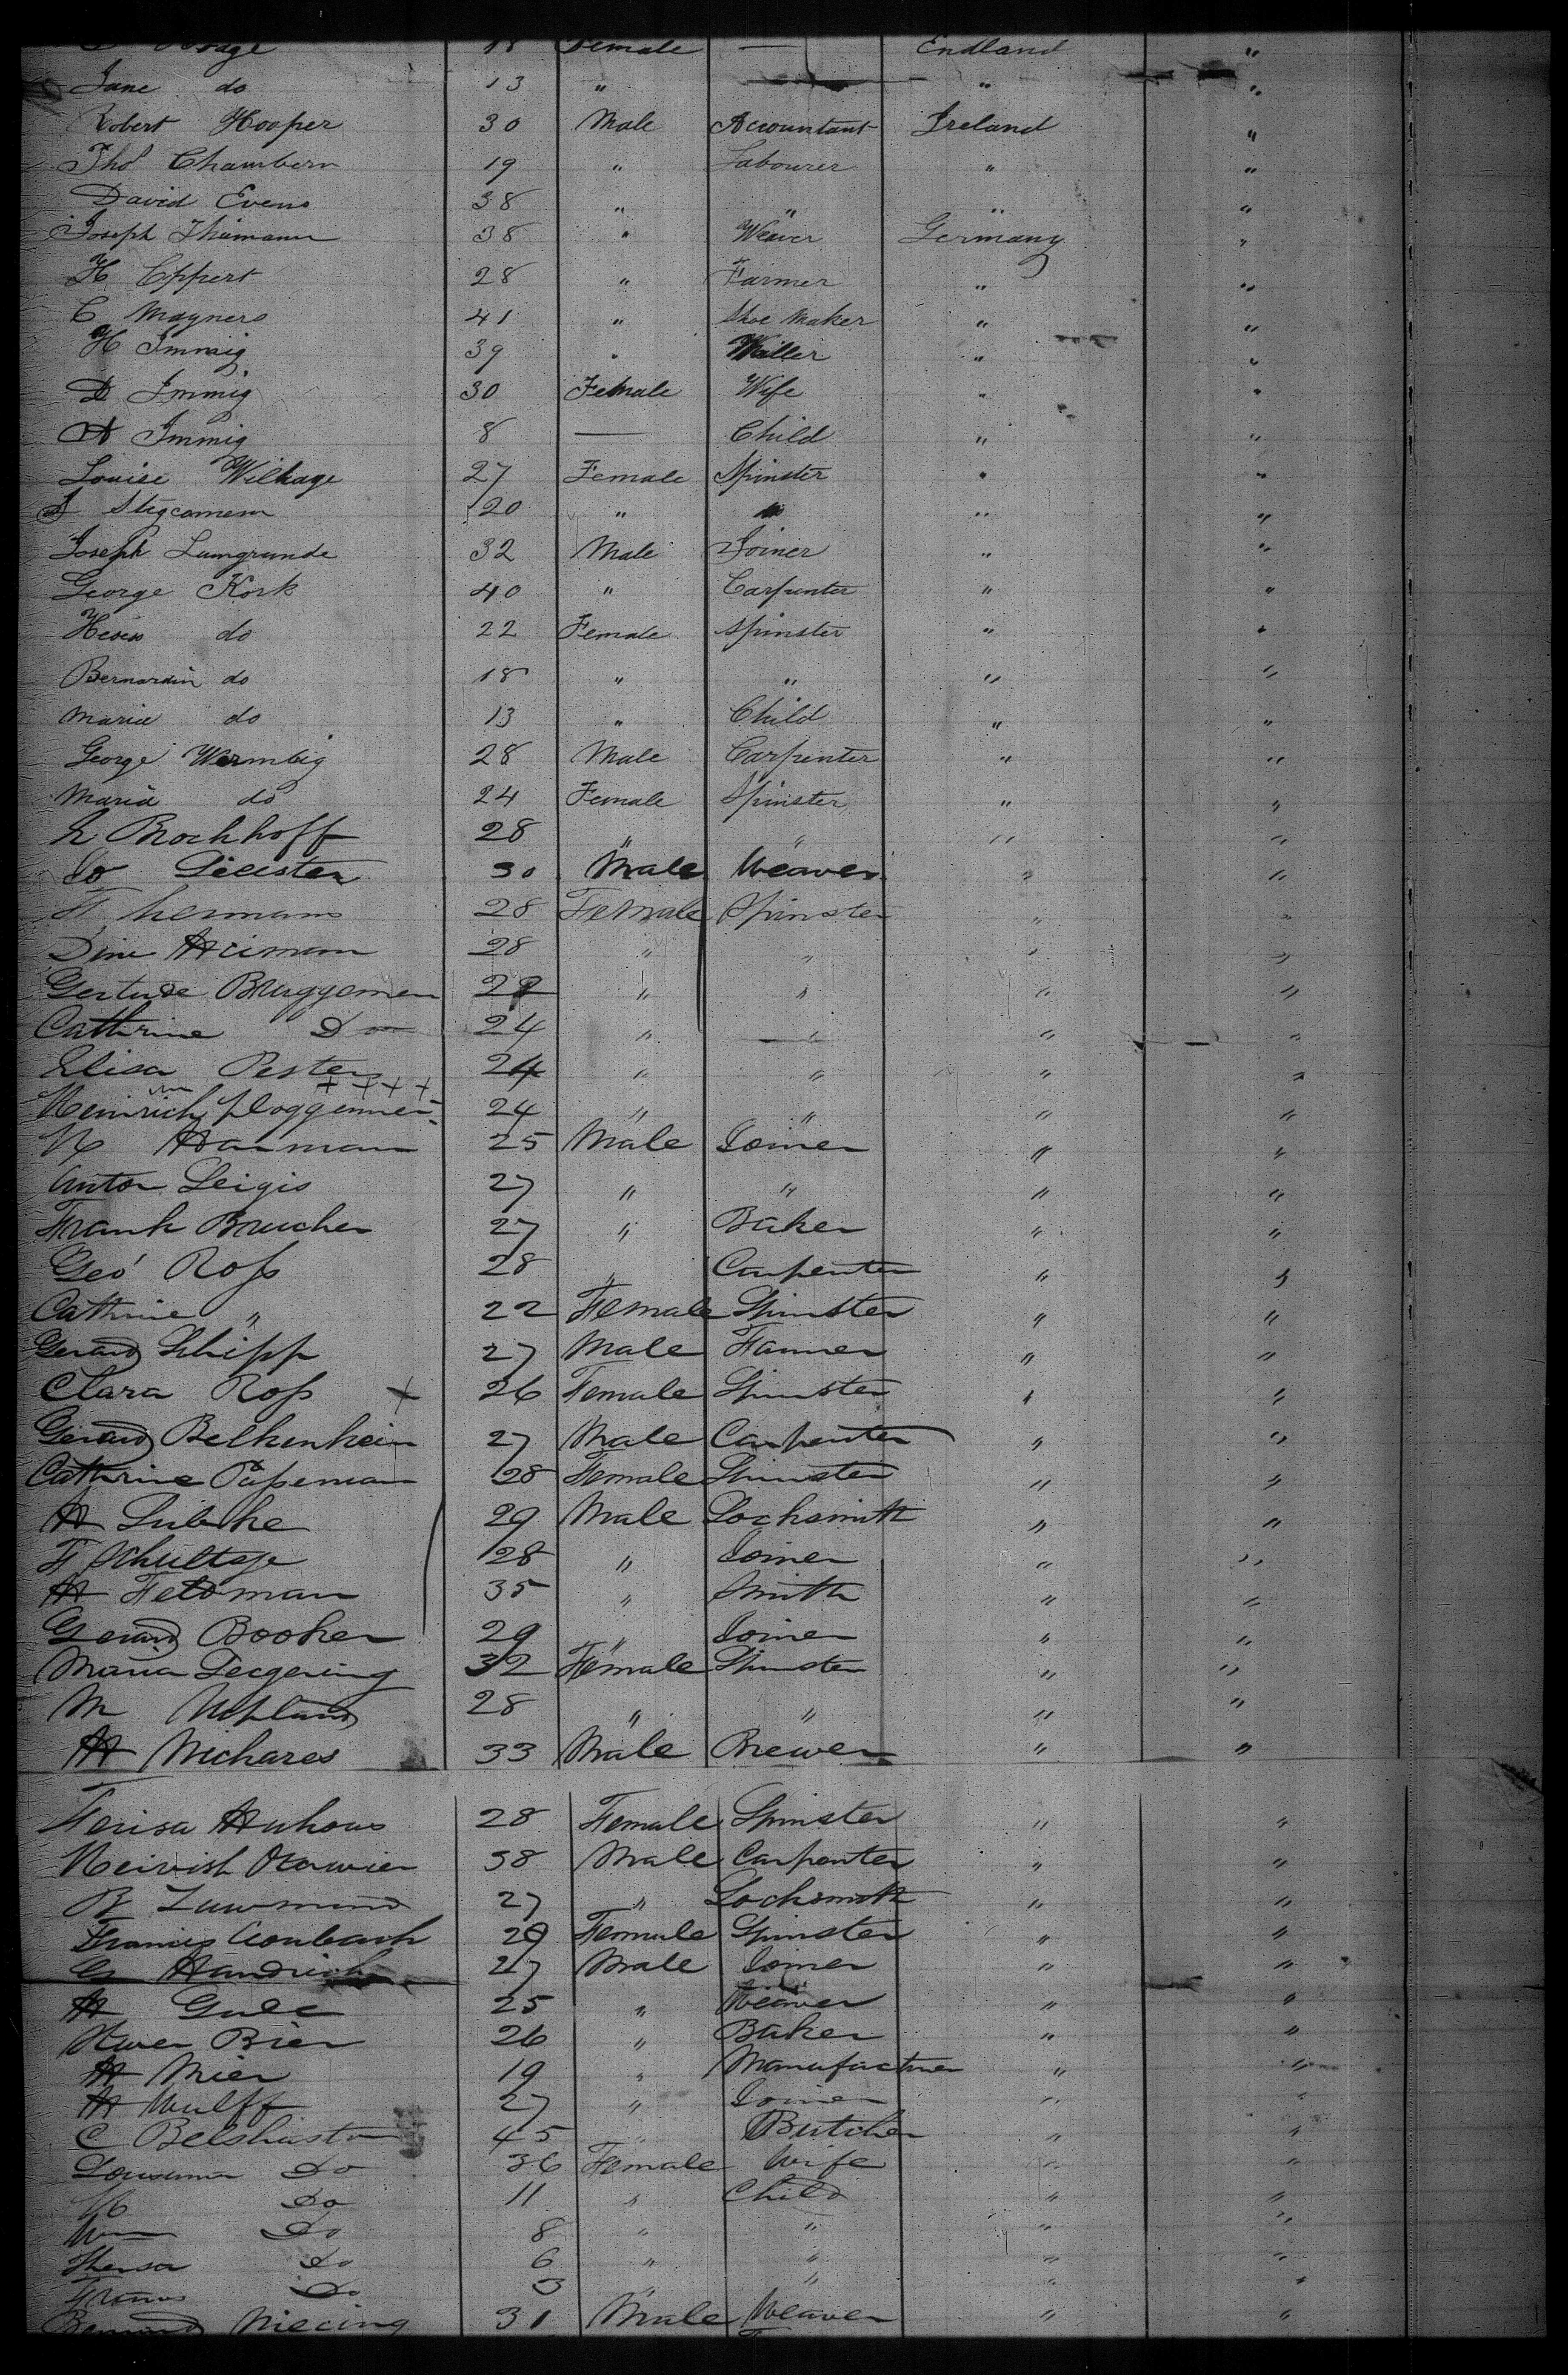 18 Female — Endland "
Jane do 13 " — " "
Robert Hooper 30 Male Accountant Ireland "
Thos Chambern 19 " Labourer " "
David Evens 38 " " " "
Joseph Thiemann 38 " Weaver Germany "
H Eppert 28 " Farmer " "
C Mayners 41 " Shoe Maker " "
H Immig 39 " Miller " "
D Immig 30 Female Wife " "
A Immig 8 — Child " "
Louise Wilhage 27 Female Spinster " "
Stegcamem 20 " " "
Joseph Lumgrunde 32 Male Joiner " "
George Kork 40 " Carpenter " "
do 22 Female Spinster " "
Bernardin do 18 " " " "
Maria do 13 " Child " "
George Wermbig 28 Male Carpenter " "
Maria do 24 Female Spinster " "
L Brockhoff 28 " " " "
30 Male Weaver " "
F hermans 28 Female Spinster " "
Dine Heimann 28 " " " "
Gertude Bruggemen " " " "
Cathrine Do 24 " " " "
Elisa Pester 24 " " " "
Heinrich Ploggemeir 24 " " " "
H Harman 25 Male Joiner " "
Anton Leigis 27 " " " "
Frank Brucher 27 " Baker " "
Geo Ross 28 " Carpenter " "
Cathrine " 22 Female Spinster " "
Gerard Schipp 27 Male Farmer " "
Clara Ross + 26 Female Spinster " "
Gerard Belkenhein 27 Male Carpenter " "
Cathrine 28 Female Spinster " "
H Lubke 29 Male Locksmith " "
F Schultze 28 " Joiner " "
H Feldman 35 " Smith " "
Gerard Booker 29 " Joiner " "
Maria Degering 32 Female Spinster " "
M Upland 28 " " " "
H Wichares 33 Male Brewer " "
Terisa Huhous 28 Female Spinster " "
38 Male Carpenter " "
B 27 " Locksmith " "
Francis 29 Female Spinster " "
G Handrich 27 Male Joiner " "
H Gule 25 " Weaver " "
Bier 26 " Baker " "
H Mier 19 " Manufacturer " "
H Wulff 27 " Joiner " "
C 45 " Butcher " "
Do 36 Female Wife " "
Do 11 " Child " "
Wm Do 8 " " " "
Theresa Do 6 " " " "
Do 3 " " " "
Bernard Niecing 31 Male Weaver " "